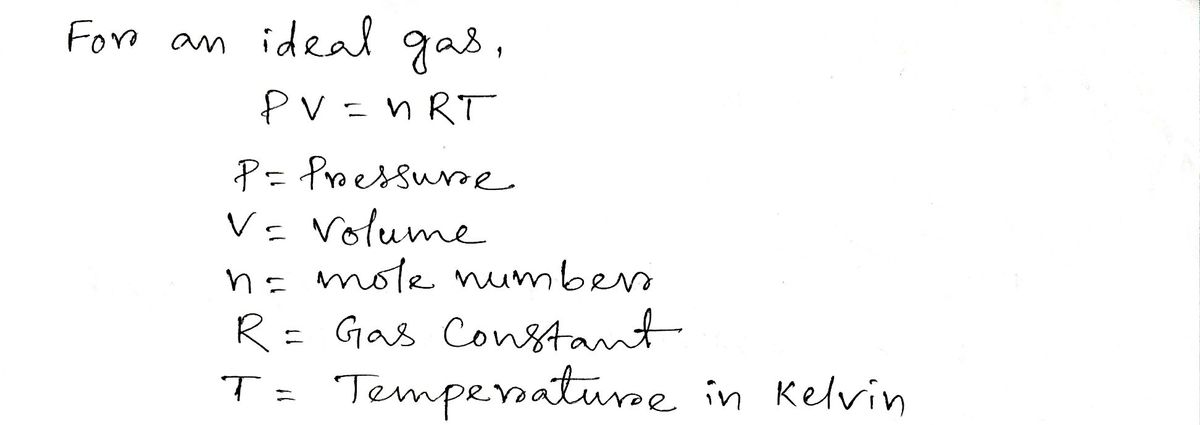 For an ideal gas,
PV = nRT
P = Pressure
V = Volume
n = mole number
R = Gas Constant
T = Temperature in Kelvin